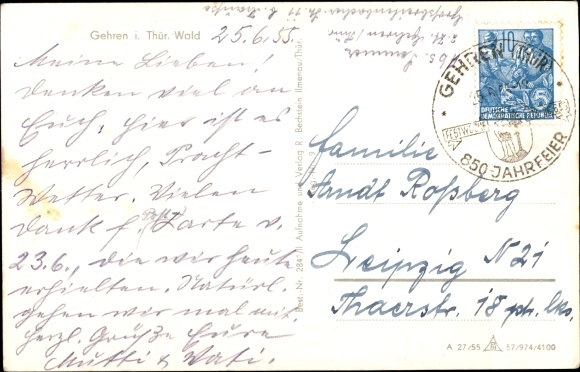 Gehren i. Thür. Wald
25.6.55.
Meine Lieben!
Denken viel an
Euch, hier ist es
herrlich, Pracht-
Wetter. Vielen
Dank f. Karte v.
23.6., die wir heute
erhielten. Natürl.
gehen wir mal mit.
herzl. Grüße Eure
Mutti & Vati.
Best.-Nr. 2847/II Aufnahme und Verlag R. Bechstein Ilmenau/Thür.
z. Zt. Gehren/Thür
GEHREN (THÜR)
850-JAHRFEIER
10
5
DEUTSCHE
DEMOKRATISCHE REPUBLIK
Familie
Arndt Roßberg
Leipzig N 21
Thaerstr. 18 ptr. lks.
A 27/55 57/974/4100